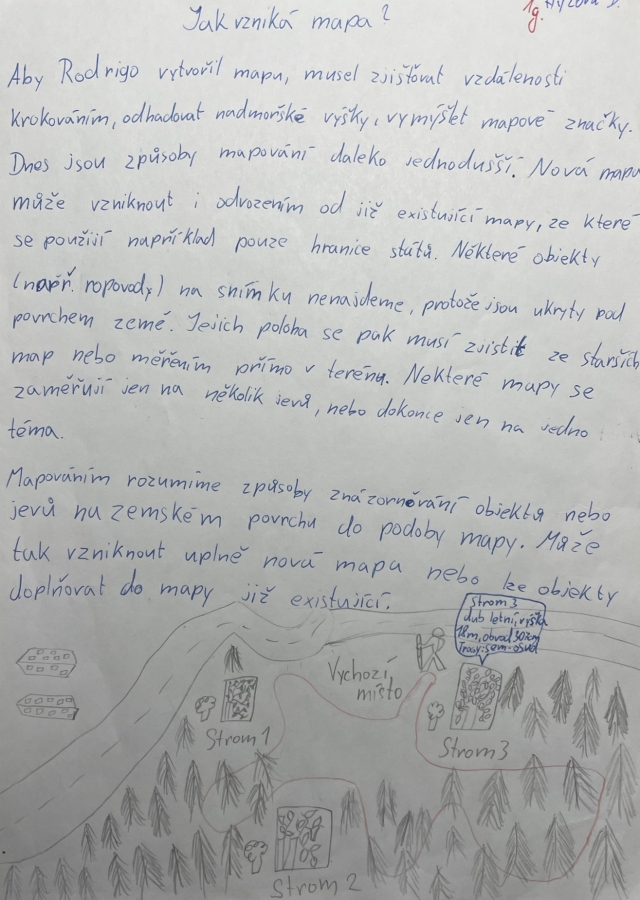 Jak vzniká mapa?
1g.
Aby Rodrigo vytvořil mapu, musel zjišťovat vzdálenosti
krokováním, odhadovat nadmořské výšky, vymýšlet mapové značky.
Dnes jsou způsoby mapování daleko jednodušší. Nová mapa
může vzniknout i odvozením od již existující mapy, ze které
se použijí například pouze hranice států. Některé objekty
(např. ropovody) na snímku nenajdeme, protože jsou ukryty pod
povrchem země. Jejich poloha se pak musí zjistit ze starších
map nebo měřením přímo v terénu. Některé mapy se
zaměřují jen na několik jevů, nebo dokonce jen na jedno
téma.
Mapováním rozumíme způsoby znázorňování objektů nebo
jevů na zemském povrchu do podoby mapy. Může
tak vzniknout uplně nová mapa nebo lze objekty
doplňovat do mapy již existující.
Strom 3
dub letní, výška
18m, obvod 302cm
Vychozí
místo
Strom 1
Strom 3
Strom 2